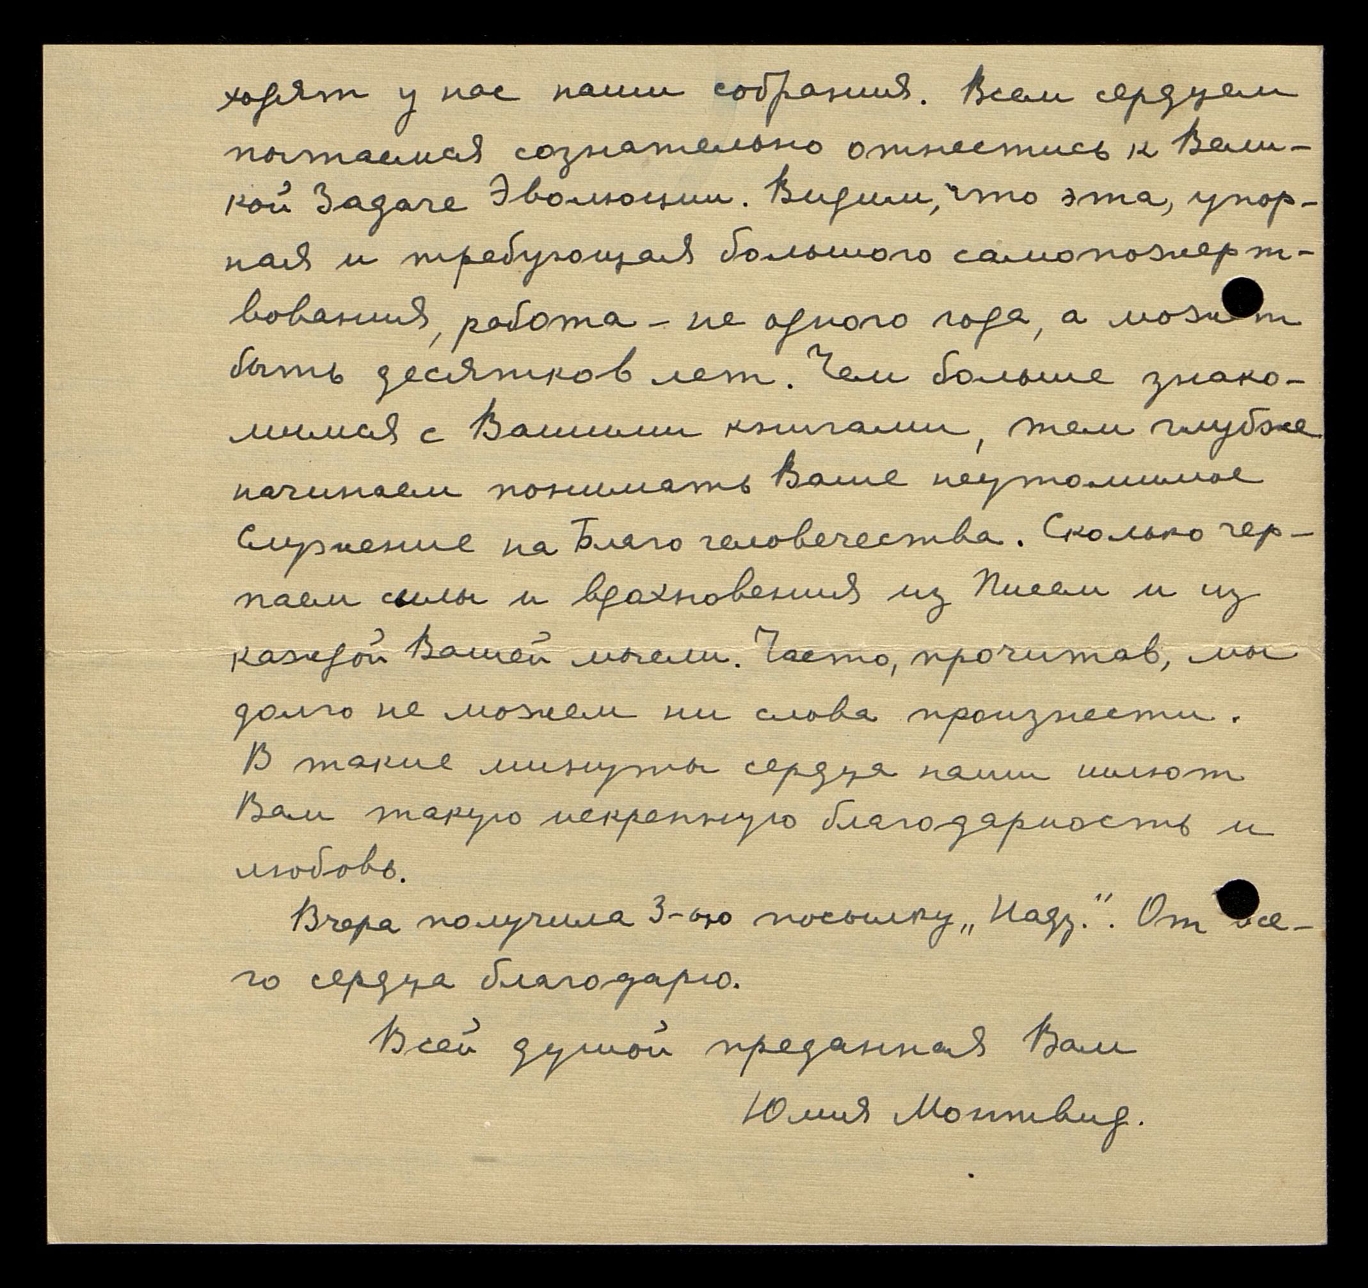 ходят у нас наши собрания. Всем сердцем
пытаемся сознательно отнестись к Вели-
кой Задаче Эволюции. Видим, что эта, упор-
ная и требующая большого самопожерт-
вования, работа – не одного года, а может
быть десятков лет. Чем больше знако-
мимся с Вашими книгами, тем глубже
начинаем понимать Ваше неутомимое
Служение на Благо человечества. Сколько чер-
паем силы и вдохновения из Писем и из
каждой Вашей мысли. Часто, прочитав, мы
долго не можем ни слова произнести.
В такие минуты сердца наши шлют
Вам такую искренную благодарность и
любовь.
Вчера получила 3-ью посылку „Надз.". От все-
го сердца благодарю.
Всей душой преданная Вам
Юлия Монтвид.